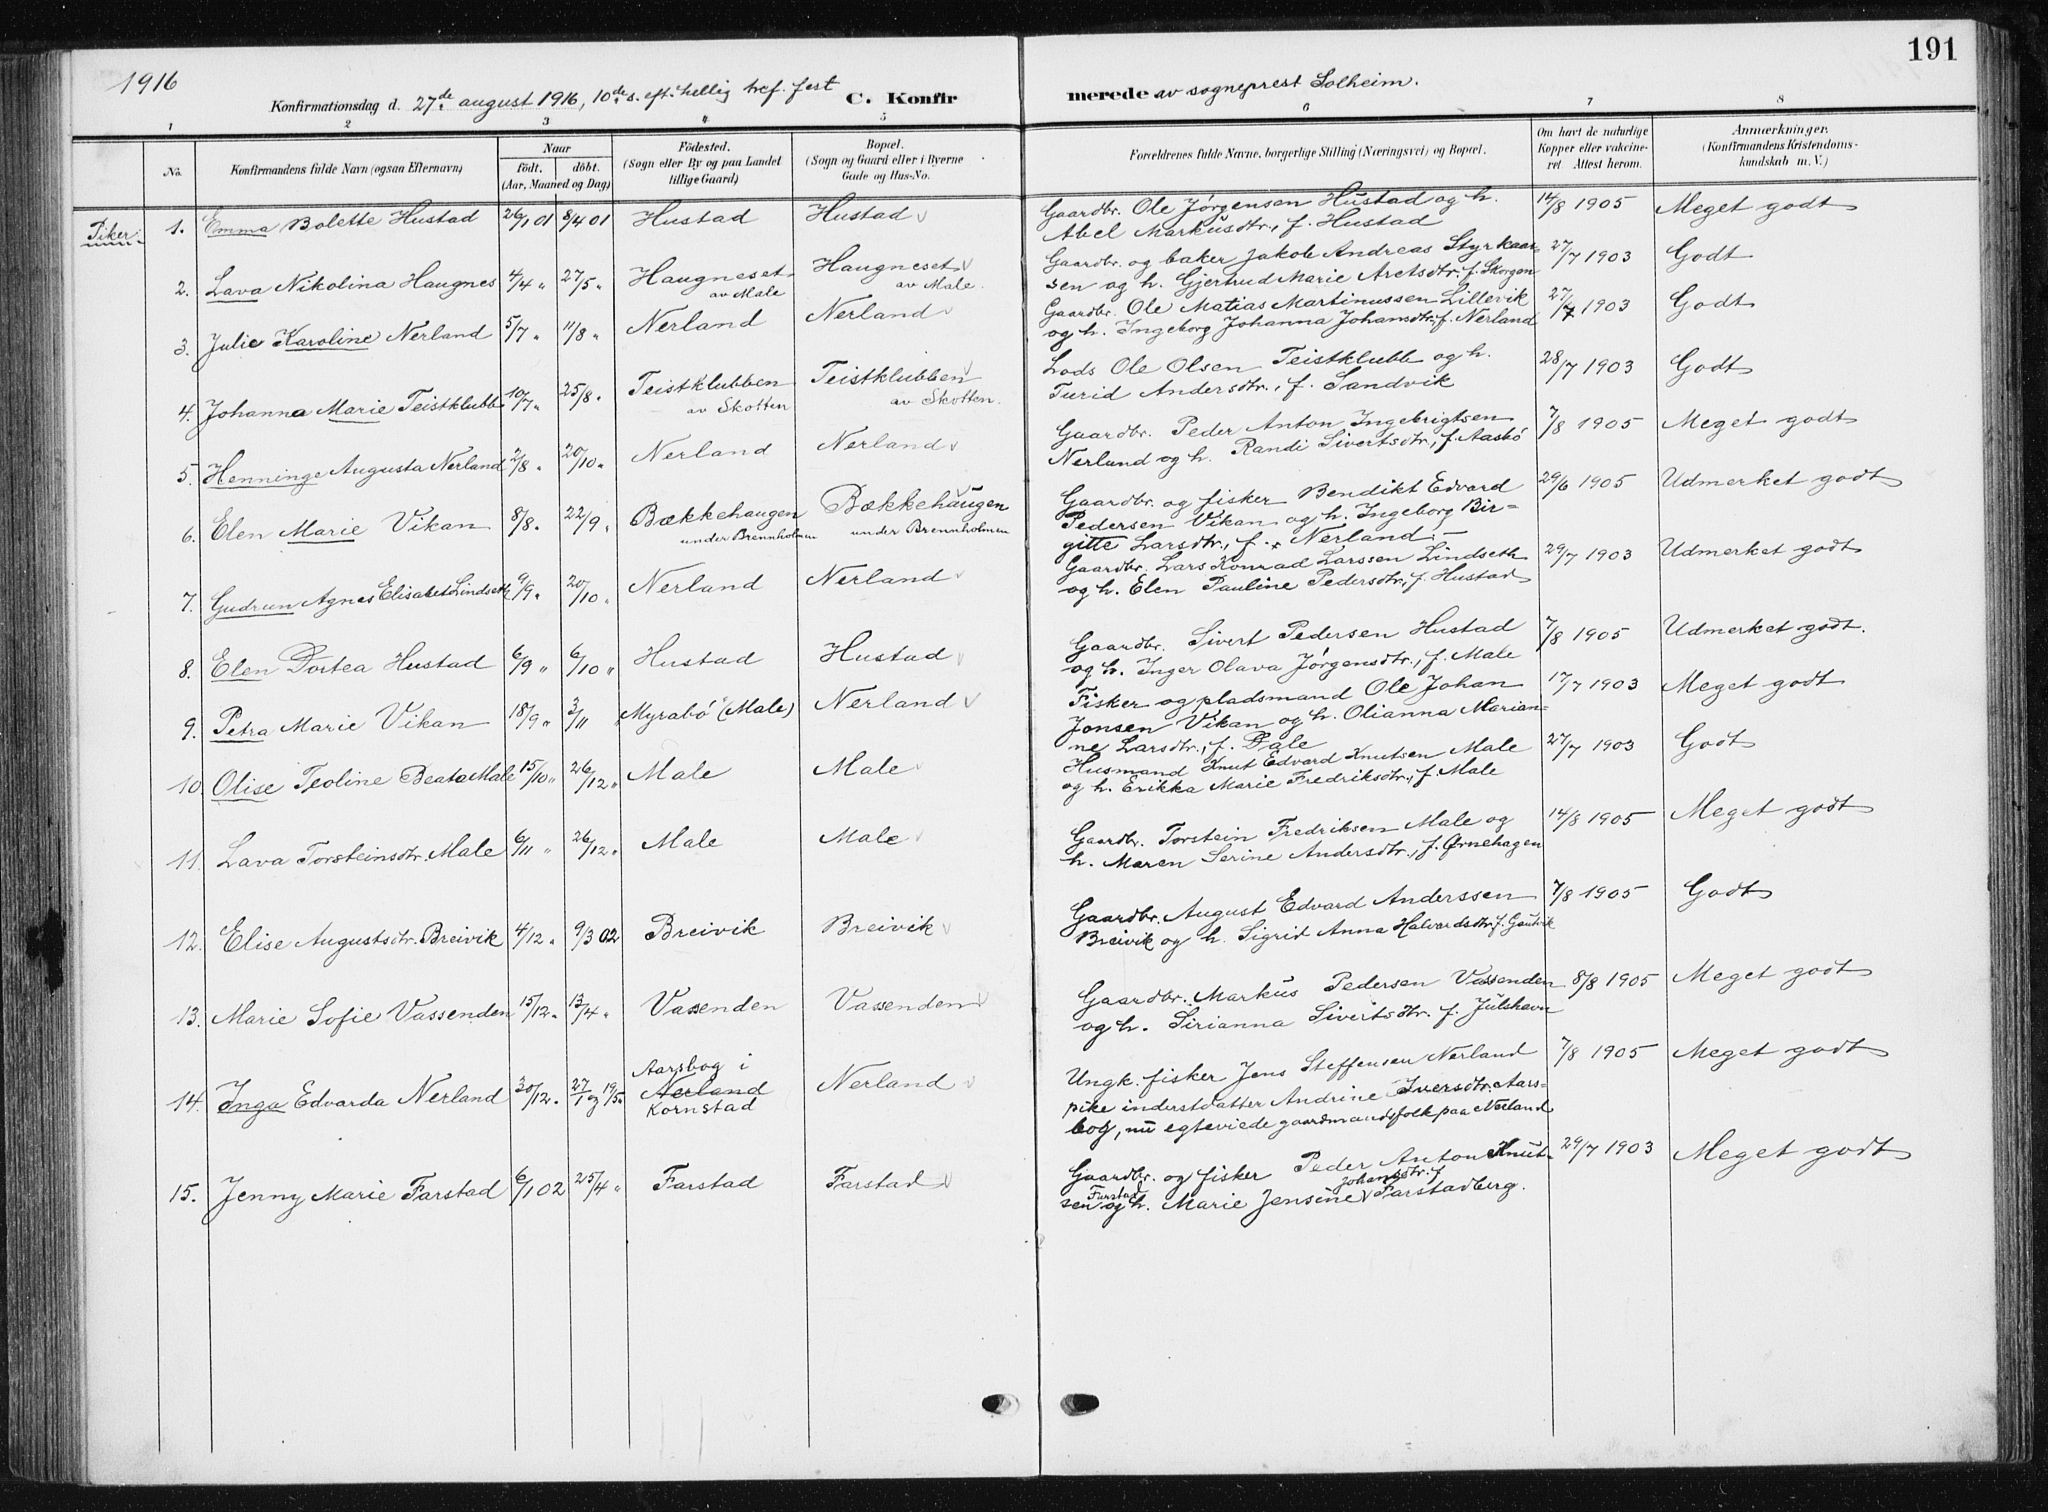 191
1916
Konfirmationsdag d. 27de august 1916, 10de s. eft. hellig tref. fest C. Konfir merede av sogneprest Solheim.
1 2 3 4 5 6 7 8
No. Konfirmandens fulde Navn (ogsaa Efternavn) Naar født. døbt. (Aar, Maaned og Dag) Fødested. (Sogn eller By og paa Landet tillige Gaard) Bopæl. (Sogn og Gaard eller i Byerne Gade og Hus-No. Forældrenes fulde Navne, borgerlige Stilling (Næringsvei) og Bopæl. Om havt de naturlige Kopper eller vakcineret. Attest herom. Anmærkninger. (Konfirmandens Kristendomskundskab m. V.)
Piker:
1. Emma Bolette Hustad 26/1 01 8/4 01 Hustad Hustad Gaardbr. Ole Jørgensen Hustad og h. 14/8 1905 Meget godt
Abel Markusdtr., f. Hustad
2. Lava Nikolina Haugnes 4/4 " 27/5 " Haugneset Haugneset Gaardbr. og baker Jakob Andreas Styrkaar- 27/7 1903 Godt
av Male av Male. sen og h. Gjertrud Marie Aretsdtr. f. Skorgen
3. Julie Karoline Nerland 5/7 " 11/8 " Nerland Nerland Gaardbr. Ole Matias Martinussen Lillevik 27/7 1903 Godt
og h. Ingeborg Johanna Johansdtr., f. Nerland
4. Johanna Marie Teistklubb 10/7 " 25/8 " Teistklubben Teistklubben Lods Ole Olsen Teistklubb og h. 28/7 1903 Godt
av Skotten av Skotten. Turid Andersdtr., f. Sandvik
5. Henninge Augusta Nerland 2/8 " 20/10 " Nerland Nerland Gaardbr. Peder Anton Ingebrigtsen 7/8 1905 Meget godt
Nerland og h. Randi Sivertsdtr., f. Aasbö
6. Elen Marie Vikan 8/8 " 22/9 " Bækkehaugen Bækkehaugen Gaardbr. og fisker Bendikt Edvard 29/6 1905 Udmerket godt
under Brennholmen under Brennholmen Pedersen Vikan og h. Ingeborg Bir-
gitte Larsdtr., f. Nerland.
7. Gudrun Agnes Elisabet Lindseth 9/9 " 20/10 " Nerland Nerland Gaardbr. Lars Konrad Larssen Lindseth 29/7 1903 Udmerket godt
og h. Elen Pauline Pedersdtr., f. Hustad
8. Elen Dortea Hustad 6/9 " 6/10 " Hustad Hustad Gaardbr. Sivert Pedersen Hustad 7/8 1905 Udmerket godt.
og h. Inger Olava Jørgensdtr., f. Male
9. Petra Marie Vikan 18/9 " 3/11 " Myrabö (Male) Nerland Fisker og pladsmand Ole Johan 17/7 1903 Meget godt
Jonsen Vikan og h. Olianna Marian-
ne Larsdtr., f. Dale
10. Olise Teoline Beata Male 15/10 " 26/12 " Male Male Husmand Knut Edvard Knutsen Male 27/7 1903 Godt
og h. Erikka Marie Fredriksdtr., f. Male
11. Lava Torsteinsdtr. Male 6/11 " 26/12 " Male Male Gaardbr. Torstein Fredriksen Male og 14/8 1905 Meget godt
h. Maren Serine Andersdtr., f. Ørnehagen
12. Elise Augustsdtr. Breivik 4/12 " 9/3 02 Breivik Breivik Gaardbr. August Edvard Anderssen 7/8 1905 Godt
Breivik og h. Sigrid Anna Halvardsdtr. f. Gautvik
13. Marie Sofie Vassenden 15/12 " 13/4 " Vassenden Vassenden Gaardbr. Markus Pedersen Vassenden 8/8 1905 Meget godt
og h. Sirianna Sivertsdtr. f. Julshavn
14. Inga Edvarda Nerland 30/12 " 27/1 og 19/5 " Aarsbog i Nerland Kornstad Nerland Ungk. fisker Jens Steffensen Nerland 7/8 1905 Meget godt
pike inderstdatter Andrine Iversdtr. Aars-
bog, nu egteviede gaardmandsfolk paa Nerland
15. Jenny Marie Farstad 6/1 02 25/4 " Farstad Farstad Gaardbr. og fisker Peder Anton Knut- 29/7 1903 Meget godt
sen Farstad og h. Marie Jensine Johansdtr. f. Farstadberg.